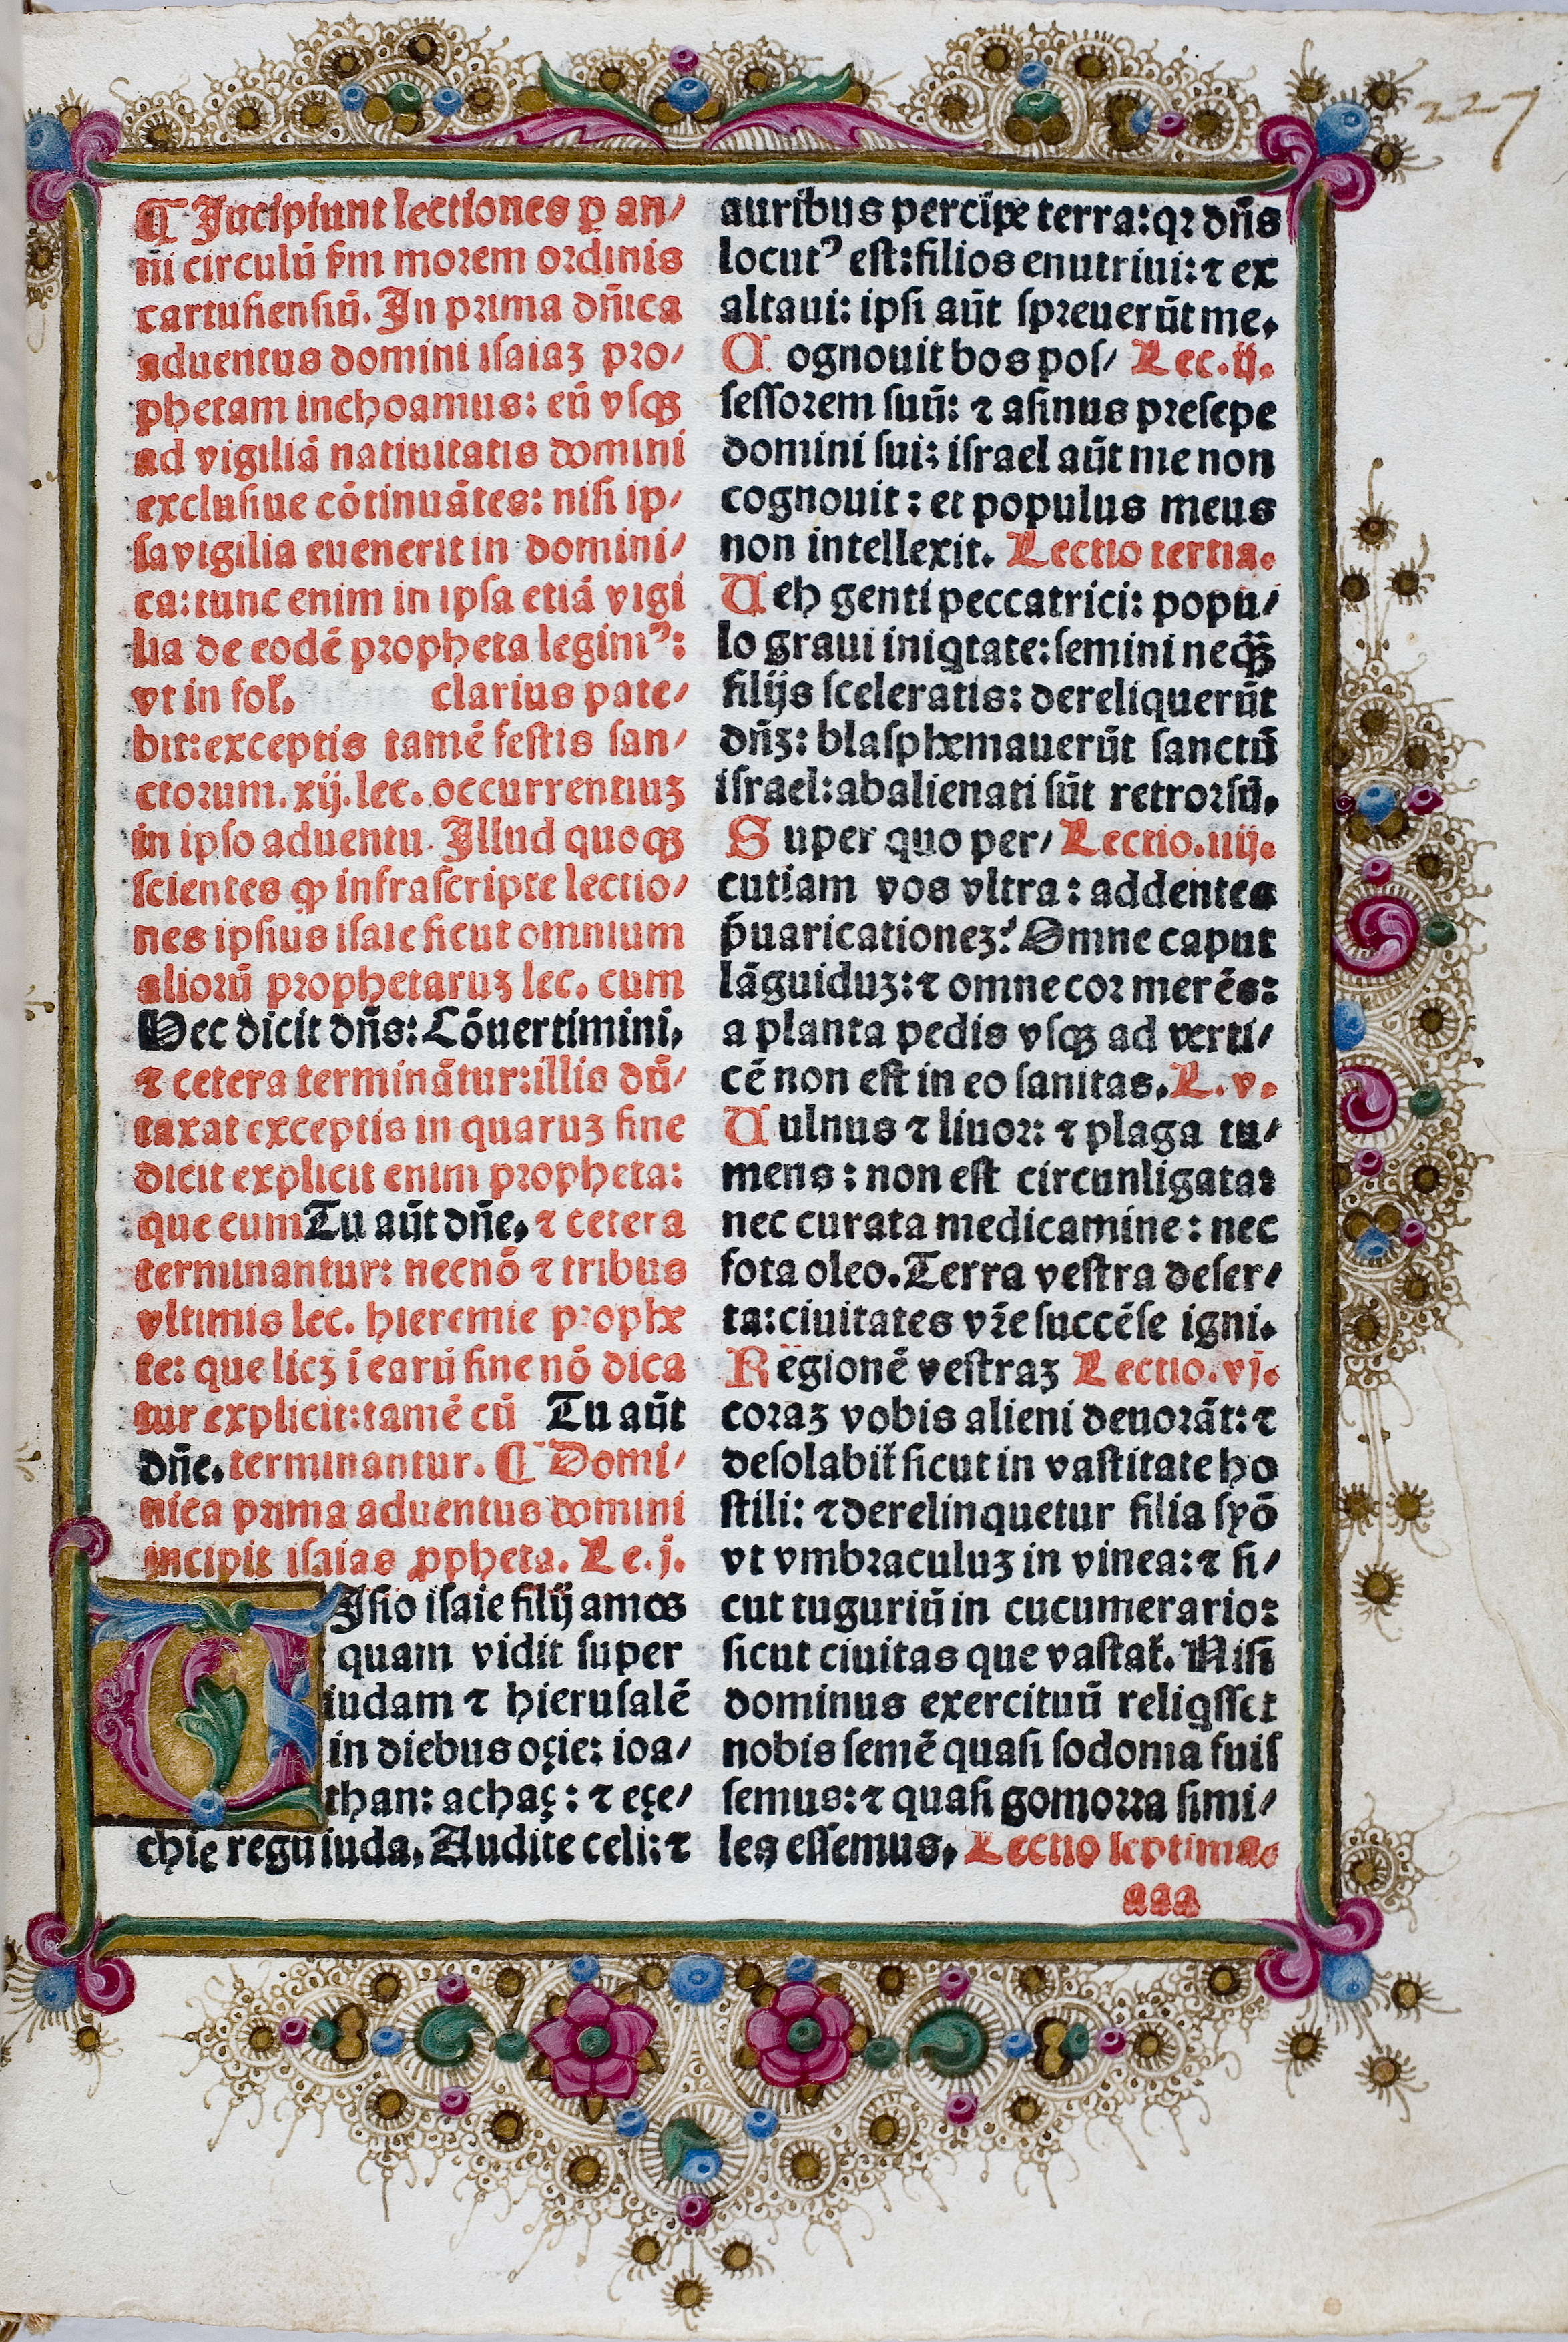 227
¶ Incipiunt lectiones ꝑ an/
ni circulū ẜm morem ordinis
cartuſienſiū. In prima dn̄ica
aduentus domini iſaiaꝫ pro/
phetam inchoamus: eū vſqꝫ
ad vigiliā natiuitatis domini
excluſiue cōtinuātes: niſi ip/
ſa vigilia euenerit in domini/
ca: tunc enim in ipſa etiā vigi
lia de eodē propheta legimꝰ:
vt in fol̄. clarius pate/
bit: exceptis tamē feſtis ſan/
ctorum. xij. lec. occurrentiuꝫ
in ipſo aduentu. Illud quoqꝫ
ſcientes ꝙ infraſcripte lectio/
nes ipſius iſaie ſicut omnium
aliorū prophetaruꝫ lec. cum
Hec dicit dn̄s: Cōuertimini,
⁊ cetera terminātur: illis dū/
taxat exceptis in quaruꝫ fine
dicit explicit enim propheta:
que cum Tu aūt dn̄e, ⁊ cetera
terminantur: necnō ⁊ tribus
vltimis lec. hieremie prophe
te: que licꝫ ī earū fine nō dica
tur explicit: tamē cū Tu aūt
dn̄e. terminantur. ¶ Domi/
nica prima aduentus domini
incipit iſaias ꝓpheta. Le. j.
VIſio iſaie filij amos
quam vidit ſuper
iudam ⁊ hieruſalē
in diebus oçie: ioa/
than: achaç: ⁊ eçe/
chie regū iuda. Audite celi: ⁊
auribus percipe terra: qꝛ dn̄s
locutꝰ eſt: filios enutriui: ⁊ ex
altaui: ipſi aūt ſpreuerūt me.
C ognouit bos poſ/ Lec. ij.
ſeſſorem ſuū: ⁊ aſinus preſepe
domini ſui: iſrael aūt me non
cognouit: et populus meus
non intellexit. Lectio tertia.
V eh genti peccatrici: popu/
lo graui iniqtate: ſemini neqꝫ
filijs ſceleratis: dereliquerūt
dn̄ꝫ: blaſphemauerūt ſanctū
iſrael: abalienati ſūt retrorſū.
S uper quo per/ Lectio. iiij.
cutiam vos vltra: addentes
p̄uaricationeꝫ? Omne caput
lāguiduꝫ: ⁊ omne cor merēs:
a planta pedis vſqꝫ ad verti/
cē non eſt in eo ſanitas. L. v.
V ulnus ⁊ liuor: ⁊ plaga tu/
mens: non eſt circunligata:
nec curata medicamine: nec
fota oleo. Terra veſtra deſer/
ta: ciuitates vr̄e ſuccēſe igni.
R egionē veſtraꝫ Lectio. vj.
coraꝫ vobis alieni deuorāt: ⁊
deſolabit̄ ſicut in vaſtitate ho
ſtili: ⁊ derelinquetur filia ſyō
vt vmbraculuꝫ in vinea: ⁊ ſi/
cut tuguriū in cucumerario:
ſicut ciuitas que vaſtat̄. Niſi
dominus exercituū reliqſſet
nobis ſemē quaſi ſodoma fuiſ
ſemus: ⁊ quaſi gomorra ſimi/
les eſſemus. Lectio ſeptima.
aaa